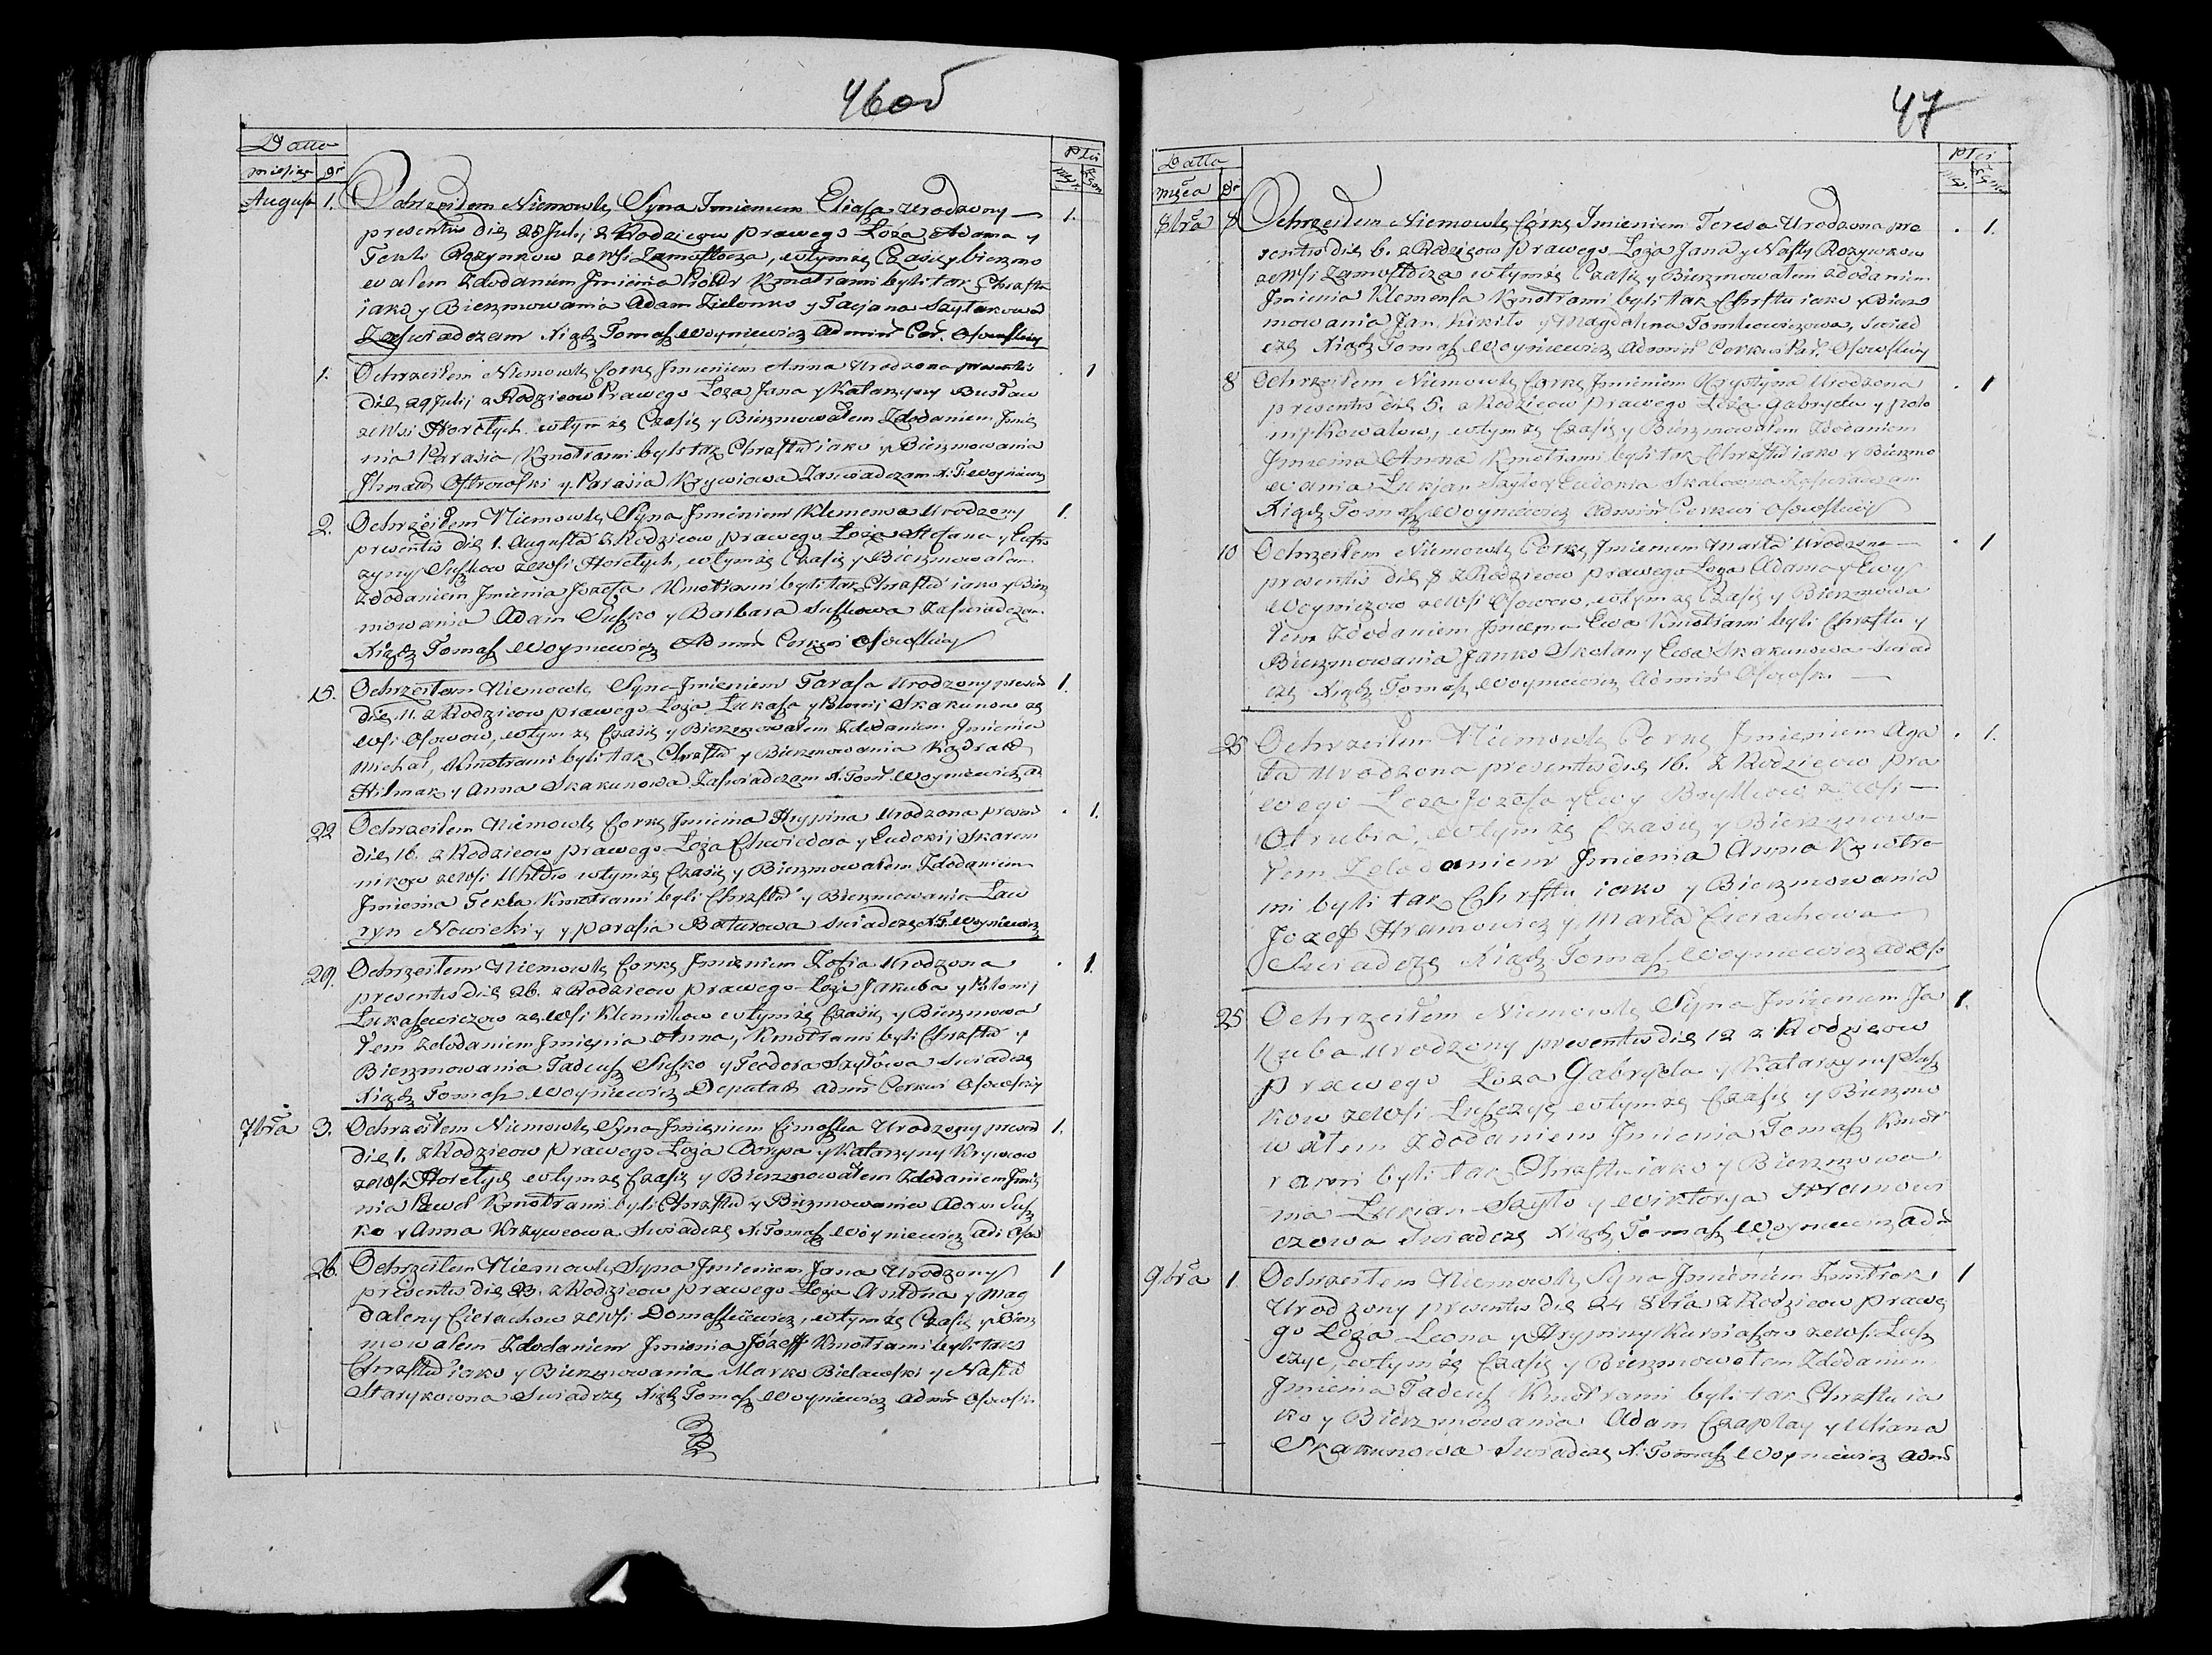 46об
Datta
miesiąc dń
Płci
August 1. Ochrzciłem Niemowlę Syna Imieniem Eliasa urodzony 1.
presentis die 28 Julij z Rodzicow prawego Łoża Adama y
Tekli Rożynkow ze Wsi Zamosłocza, w tymże Czasie y bierzmo
wałem z dodaniem Imienia Piotr Kmotrami byli tak Chrztu
iako y Bierzmowania Adam Zielonko y Tacjana Szytakowa
Zaswiadczam Xiądz Tomasz Woyniewicz Admin Cer. Osowskiey
1. Ochrzciłem Niemowlę Corkę Imieniem Anna Urodzona presentis . 1
die 29 Julij z Rodzicow Prawego Łoża Jana y Katarzyny Busław
ze Wsi Horełych w tym że Czasie y Bierzmowałem z dodaniem Imie
nia Parasia Kmotrami byli tak Chrztu iako y Bierzmowania
Ihnacy Ostrowski y Parasia Krywiowa Zaswiadczam X. T. Woyniewicz
2. Ochrzciłem Niemowlę Syna Imieniem Klemensa Urodzony 1.
presentis die 1. Augusta z Rodzicow prawego Łoża Stefana y Eufro
zyny Suszkow ze Wsi Horełych, w tymże Czasie y Bierzmowałem
z dodaniem Imienia Jozefa Kmotrami byli tak Chrztu iako y Bierz
mowania Adam Suszko y Barbara Suszkowa Zaswiadczam
Xiądz Tomasz Woyniewicz Admin Cerkwi Osowskiey
15. Ochrzciłem Niemowlę Syna Imieniem Tarasa Urodzony presen 1.
die 11. z Rodzicow prawego Łoża Łukasza y Połonij Skakunow ze
Wsi Osowow, w tym że Czasie y Bierzmowałem z dodaniem Imienia
Michał, Kmotrami byli tak Chrztu y Bierzmowania Kądrat
Hilmak y Anna Skakunowa Zaswiadczam X. Tom. Woyniewicz ad
22 Ochrzciłem Niemowlę Corkę Imienia Hrypina Urodzona presen . 1.
die 16. z Rodzicow prawego Łoża Chwiedora y Eudokij Skarem
nikow ze Wsi Uhłów w tymże Czasie y Bierzmowałem z dodaniem
Imienia Tekla Kmotrami byli Chrztu y Bierzmowania Law
ryn Nowicki y Parasia Baturowa Swiadczę X. T. Woyniewicz
29. Ochrzciłem Niemowlę Corkę Imieniem Zofia Urodzona . 1.
presentis die 26. z Rodzicow prawego Łoża Jakuba y Połonij
Łukaszewiczow ze Wsi Klennikow w tymże Czasie y Bierzmowa
łem z dodaniem Imienia Anna, Kmotrami byli Chrztu y
Bierzmowania Tadeusz Suszko y Teodora Szyłowa Swiadczę
Xiądz Tomasz Woyniewicz Deputat admin Cerkwi Osowskiey
7bra 3. Ochrzciłem Niemowlę Syna Imieniem Cimoszka Urodzony presen 1.
die 1. z Rodzicow prawego Łoża Borysa y Katarzyny Krywcow
ze Wsi Horełych w tymże Czasie y Bierzmowałem z dodaniem Imie
nia Paweł Kmotrami byli Chrztu y Bierzmowania Adam Susz
ko y Anna Krzywcowa Swiadczę X. Tomasz Woyniewicz adi Oso
26. Ochrzciłem Niemowlę Syna Imieniem Jana Urodzony 1
presentis die 23. z Rodzicow prawego Łoża Antona y Mag
daleny Cierachow ze Wsi Domaszewicz, w tymże Czasie y Bierz
mowałem z dodaniem Imienia Józeff Kmotrami byli tak
Chrztu iako y Bierzmowania Marko Bielawski y Nasta
Starykowna Swiadczę Xiądz Tomasz Woyniewicz admin Osowski
47
Datta
mśca Dń
Płci
8bra 8 Ochrzciłem Niemowlę Córkę Imieniem Teresa Urodzona pre . 1.
sentis die 6. z Rodzicow prawego Łoża Jana y Nasty Rożynkow
ze Wsi Zamosłocza w tymże Czasie y Bierzmowałem z dodaniem
Imienia Klemensa Kmotrami byli tak Chrztu iako y Bierz
mowania Jan Kikiło y Magdalena Tomkowiczowa, Swiad
czę Xiądz Tomasz Woyniewicz Admin Cerkwi Par. Osowskiey
8 Ochrzciłem Niemowlę Corkę Imieniem Krystyna Urodzona . 1
presentis die 5. z Rodzicow prawego Łoża Gabryela y Poło
nij Kowalow, w tym że Czasie y Bierzmowałem z dodaniem
Imienia Anna Kmotrami byli tak Chrztu iako y Bierzmo
wania Łukjan Szyło y Eudokia Skałowna Zaswiadczam
Xiądz Tomasz Woyniewicz Admin Cerkwi Osowskiey
10 Ochrzciłem Niemowlę Corkę Imieniem Marta Urodzona . 1
presentis die 8 z Rodzicow prawego Łoża Adama y Ewy
Woyniczow ze Wsi Osowow, w tym że Czasie y Bierzmowa
łem z dodaniem Imienia Ewa Kmotrami byli Chrztu y
Bierzmowania Janko Skolan y Ewa Skakunowa Swiad
czę Xiądz Tomasz Woyniewicz Admin Osowsk.
25 Ochrzciłem Niemowlę Corkę Imieniem Aga . 1.
ta Urodzona presentis die 16. z Rodzicow pra
wego Łoża Jozefa y Ewy Brytkow ze Wsi
Otrubia, w tym że Czasie y Bierzmowa
łem z dodaniem Imienia Anna Kmotra
mi byli tak Chrztu iako y Bierzmowania
Jozef Hramowicz y Marta Cierachowa
Swiadczę Xiądz Tomasz Woyniewicz ad Oso
25 Ochrzciłem Niemowlę Syna Imieniem Ja 1.
kuba Urodzony presentis die 12 z Rodzicow
prawego Łoża Gabryela y Katarzyny Susz
kow ze Wsi Łuszczyc, w tymże Czasie y Bierzmo
wałem z dodaniem Imienia Tomasz Kmot
rami byli tak Chrztu iako y Bierzmowa
nia Łukian Szyło y Wiktorya Hramowi
czowa Swiadczę Xiądz Tomasz Woyniewicz adm
9.bra 1. Ochrzciłem Niemowlę Syna Imieniem Zmitrok 1
Urodzony presentis die 24 8bra z Rodzicow prawe
go Łoża Leona y Hrypiny Kurniaszow ze Wsi Łusz
czyc, w tymże Czasie y Bierzmowałem z dodaniem
Imienia Tadeusz Kmotrami byli tak Chrztu ia
ko y Bierzmowania Adam Czaplay y Uliana
Skakunowa Swiadczę X. Tomasz Woyniewicz adm